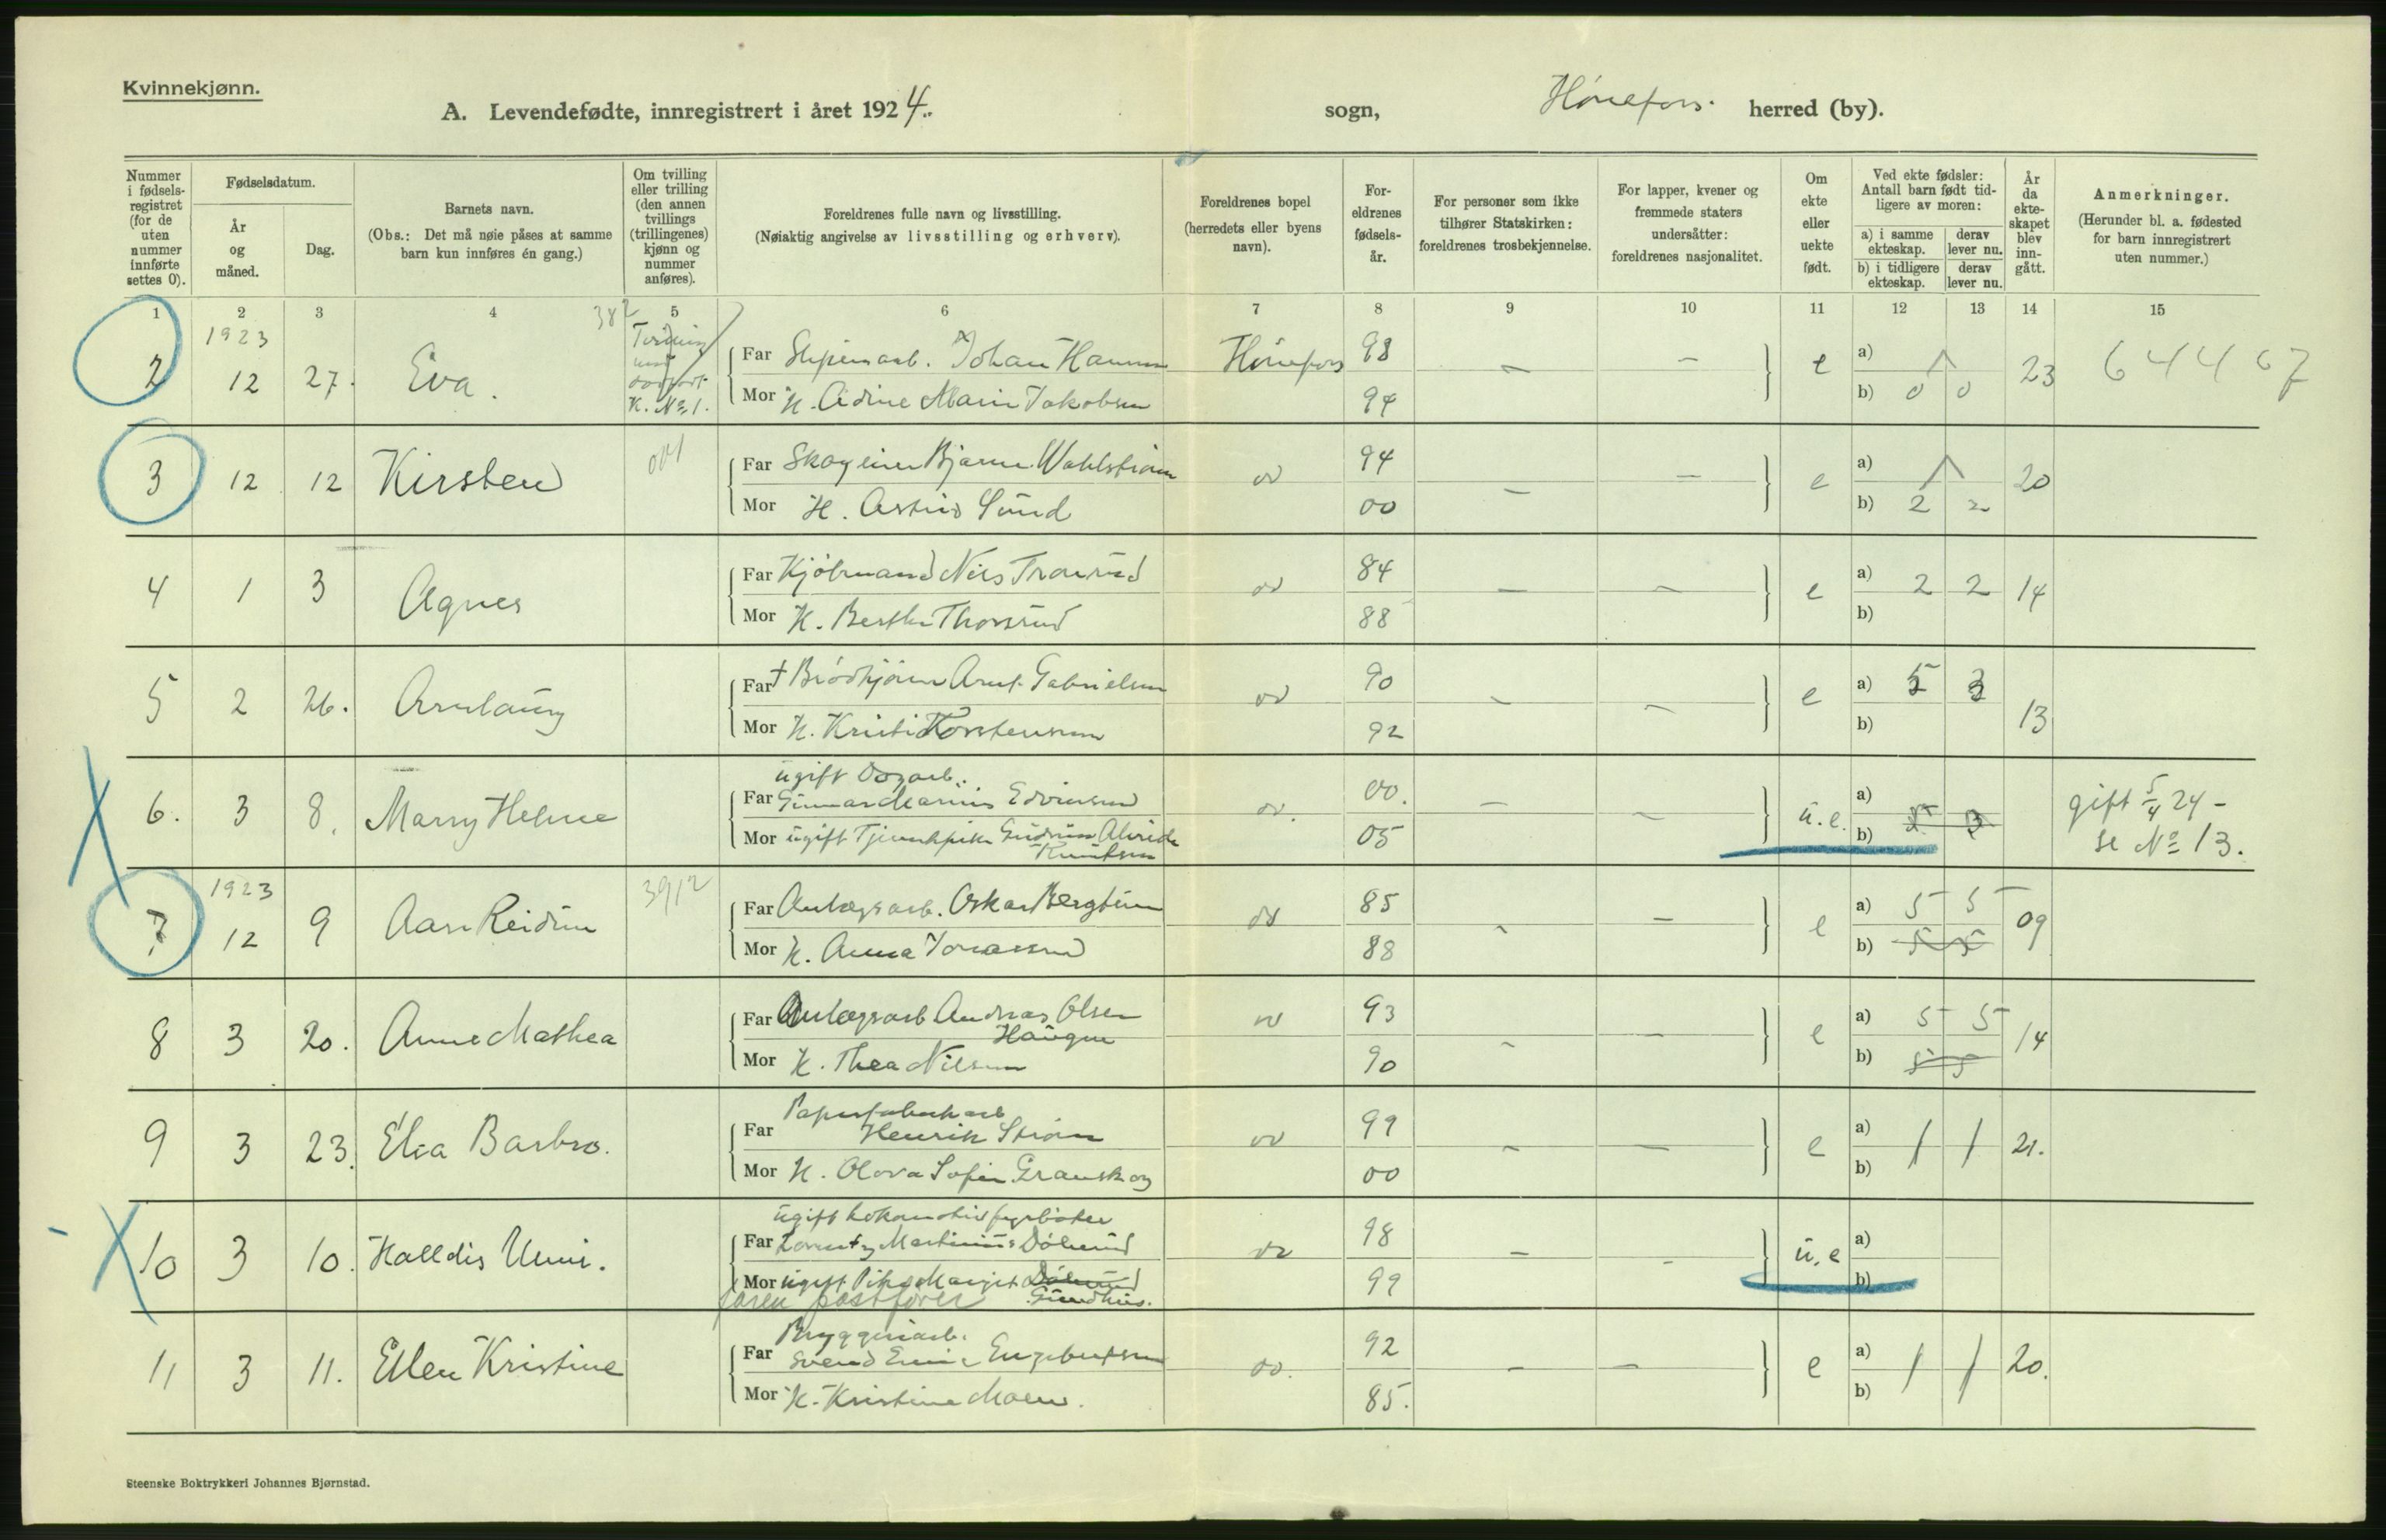 Kvinnekjønn.
A. Levendefødte, innregistrert i året 1924. sogn, Hønefoss. herred (by).
Nummer i fødselsregistret (for de uten nummer innførte settes 0).
Fødselsdatum.
År og måned.
Dag.
Barnets navn.
(Obs.: Det må nøie påses at samme barn kun innføres én gang.)
Om tvilling eller trilling (den annen tvillings (trillingenes) kjønn og nummer anføres).
Foreldrenes fulle navn og livsstilling.
(Nøiaktig angivelse av livsstilling og erhverv).
Foreldrenes bopel (herredets eller byens navn).
Foreldrenes fødselsår.
For personer som ikke tilhører Statskirken: foreldrenes trosbekjennelse.
For lapper, kvener og fremmede staters undersåtter: foreldrenes nasjonalitet.
Om ekte eller uekte født.
Ved ekte fødsler: Antall barn født tidligere av moren:
a) i samme ekteskap. derav lever nu.
b) i tidligere ekteskap. derav lever nu.
År da ekteskapet blev inngått.
Anmerkninger.
(Herunder bl. a. fødested for barn innregistrert uten nummer.)
1 2 3 4 5 6 7 8 9 10 11 12 13 14 15
2 1923 12 27. Eva. K. No 1. Far Johan Hansen Hønefoss 98 – – e a) 23 64467
Mor H. Adine Marie Jakobsen 94 b) 0 0
3 12 12 Kirsten Far Bjarne Wahlstrøm 94 – – e a) 20
Mor H. Astrid Sund 00 b) 2 2
4 1 3 Agnes Far Kjøbmand Nils 84 – – e a) 2 2 14
Mor H. Berthe Thorsrud 88 b)
5 2 26. Arnlaug Far † Arnt Gabrielsen 90 – – e a) 5 3 13
Mor H. Kristi Torstensen 92 b)
6. 3 8. Marry Helene ugift
Far Gunnar Marius Edvinsen 00. – – u.e. a) gift 5/4 24 –
Mor ugift Gudrun Alvide Knutsen 05 b) se No 13.
7 1923 12 9 Aase Reidun 3912 Far Anlægsarb. Oskar 85 – – e a) 5 5 09
Mor H. Anna 88 b) 5 5
8 3 20. Anne Mathea Far Anlægsarb Andreas Olsen Haugen 93 – – e a) 5 5 14
Mor H. Thea Nilsen 90 b) 5 5
9 3 23. Elsa Barbro. Far Henrik Strøm 99 – – e a) 1 1 21.
Mor H. Olova Sofie Granskog 00 b)
10 3 10. Halldis Unni. ugift Lokomotivfyrbøter
Far Martinius 98 – – u.e a)
Mor ugift Margit 99 b)
11 3 11. Ellen Kristine Bryggeriarb.
Far Svend Engebretsen 92 – – e a) 1 1 20.
Mor H. Kristine Moen. 85. b)
Steenske Boktrykkeri Johannes Bjørnstad.